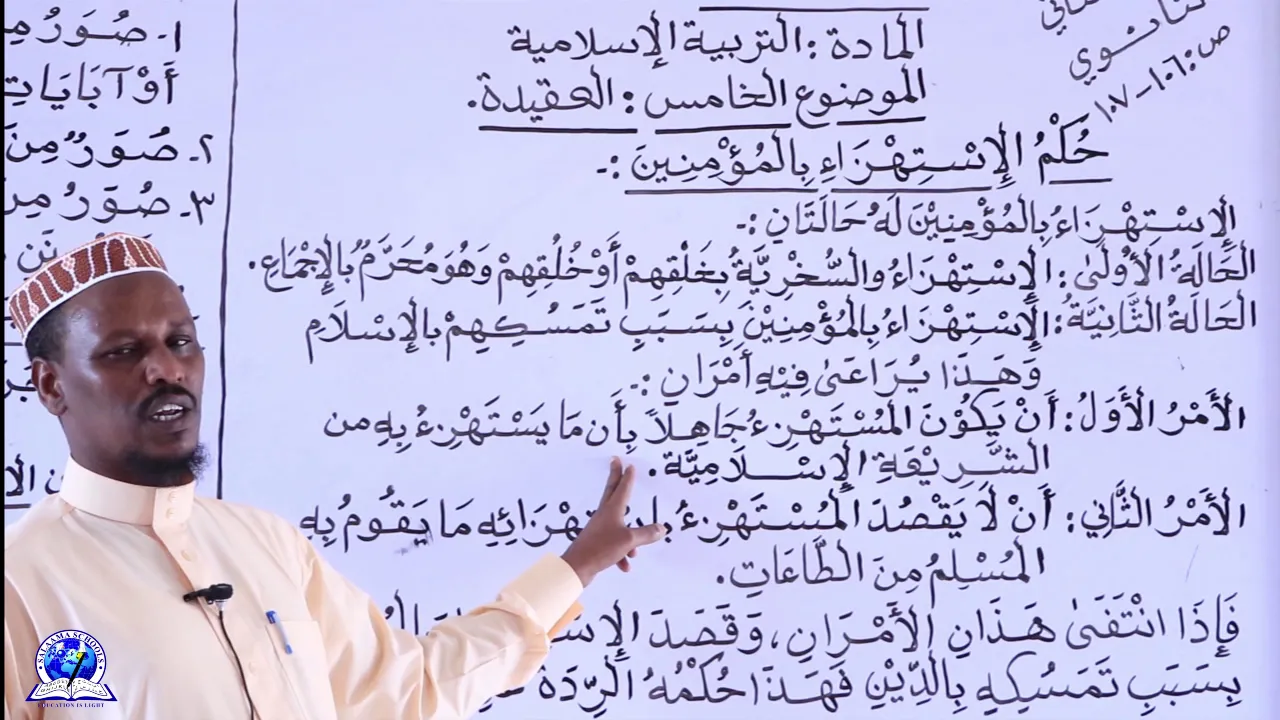 المادة : التربية الإسلامية
الموضوع الخامس : العقيدة.
ثانوي
ص: ١٠٦-١٠٧
حُكْمُ الإِسْتِهْزَاءِ بِالمُؤْمِنِينَ :-
الإِسْتِهْزَاءُ بِالمُؤْمِنِيْنَ لَهُ حَالَتَانِ :-
الحَالَةُ الأُولَىٰ : الإِسْتِهْزَاءُ والسُّخْرِيَّةُ بِخَلْقِهِمْ أَوْ خُلُقِهِمْ وَهُوَ مُحَرَّمٌ بالإِجْمَاعِ.
الحَالَةُ الثَّانِيَّةُ : الإِسْتِهْزَاءُ بِالمُؤْمِنِيْنَ بِسَبَبِ تَمَسُكِهِمْ بالإِسْلَامِ
وَهَذَا يُرَاعَىٰ فِيْهِ أَمْرَانِ :-
الأَمْرُ الأَوَلُ : أَنْ يَكُوْنَ المُسْتَهْزِءُ جَاهِلاً بِأَن مَا يَسْتَهْزِءُ بِهِ من
الشَّرِيْعَةِ الإِسْلَامِيَّة.
الأَمْرُ الثَّانِي : أَنْ لَا يَقْصُدَ المُسْتَهْزِءُ بِاسْتِهْزَائِهِ مَا يَقُومُ بِهِ
المُسْلِمُ مِنَ الطَّاعَاتِ.
فَإِذَا انْتَفَىٰ هَذَانِ الأَمْرَانِ، وَقَصَدَ
بِسَبَبِ تَمَسُكِهِ بِالدِّيْنِ فَهَذَا حُكْمُهُ الرِّدَة
١- صُوَرُ
أَوْ آبَايَاتِ
٢- صُوَرٌ مِنَ
٣- صُوَرُ
SALAAMA SCHOOLS
EDUCATION IS LIGHT